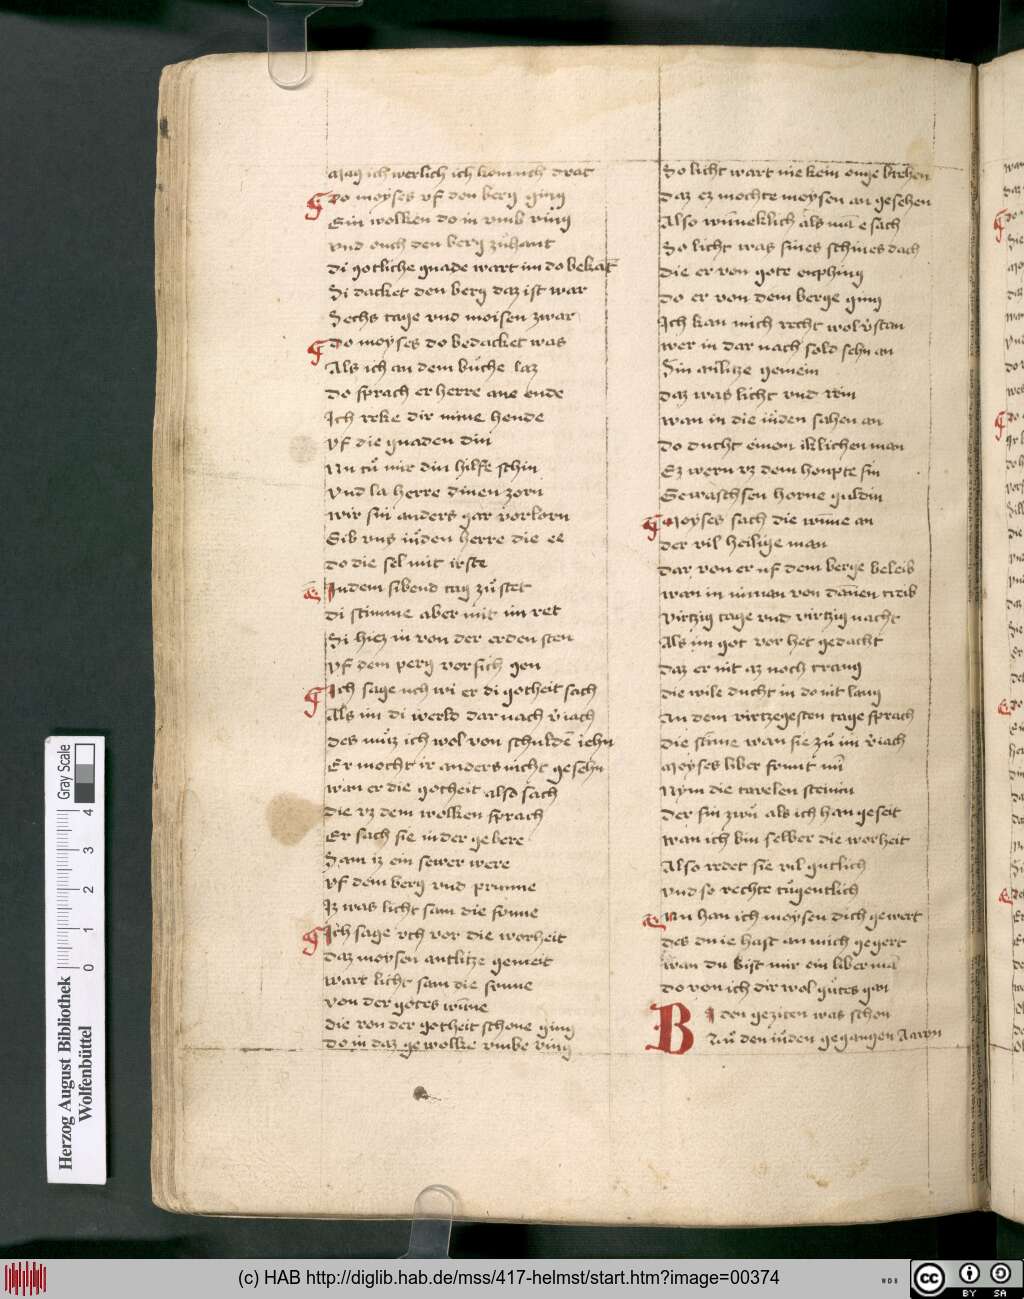 Mag ich werlich ich kom uch drat
Do moyses vf den berg ging
Ein wolken do in vmb ving
vnd ouch den berg zuhant
di gotliche gnade wart im do bekāt
Si dacket den berg daz ist war
Sechs tage vnd moisen zwar
Do moyses do bedacket was
Als ich an dem bůche laz
do sprach er herre ane ende
Ich reke dir mine hende
vf die gnaden din
Nu tů mir din hilfe schin
vnd la herre dinen zorn
wir sin anders gar vorlorn
Gib vns iůden herre die ee
do die sel mit irste
Indem sibend tag zů stet
di stimme aber mit im ret
Si hiez in von der erden sten
vf dem perg vor sich gen
Ich sage uch wi er di gotheit sach
Als im di werld dar nach v̄iach
des můz ich wol von schuldē iehn
Er mocht ir anders nicht gesehn
wan er die gotheit also sach
die vz dem wolken sprach
Er sach sie in der gebere
Sam iz ein fewer were
vf dem berg vnd prunne
Iz was licht sam die sonne
Ich sage vch vor die worheit
daz moysen antlitze gemeit
wart licht sam die sonne
von der gotes wūne
die von der gotheit schone ging
do in daz gewolke vmbe ving
So licht wart nie kein ouge brehen
daz ez mochte moysen an gesehen
Also wūneklich als mā e sach
So licht was sines schines dach
die er von gote enphing
do er von dem berge ging
Ich kan mich recht wol v̄stan
wer in dar nach sold sehn an
Sin anlitze gemein
daz was licht vnd rein
wan in die iůden sahen an
do ducht einem iklichen man
Ez wern vz dem houpte sin
Gewaschsen horne guldin
Moyses sach die wūne an
der vil heilige man
dar von er uf dem berge beleib
wan in niman von dannen treib
virtzig tage vnd virtzig nacht
Als im got vor het gedacht
daz er nit az noch trang
die wile ducht in do nit lang
An dem virtzegesten tage sprach
die stīme wan sie zů im v̄iach
Moyses liber frunt min
Nym die tavelen steinin
der sin zwů als ich han geseit
wan ich bin selber die worheit
Also redet sie vil gutlich
vnd so rechte tůgentlich
Nu han ich moysen dich gewert
des du ie hast an mich gegert
wan du bist mir ein liber mā
do von ich dir wol gůtes gan
BI den geziten was schon
Zů den iůden gegangen Aaron
Gray Scale
4 3 2 1 0
Herzog August Bibliothek
Wolfenbüttel
(c) HAB http://diglib.hab.de/mss/417-helmst/start.htm?image=00374
WDB
cc BY SA